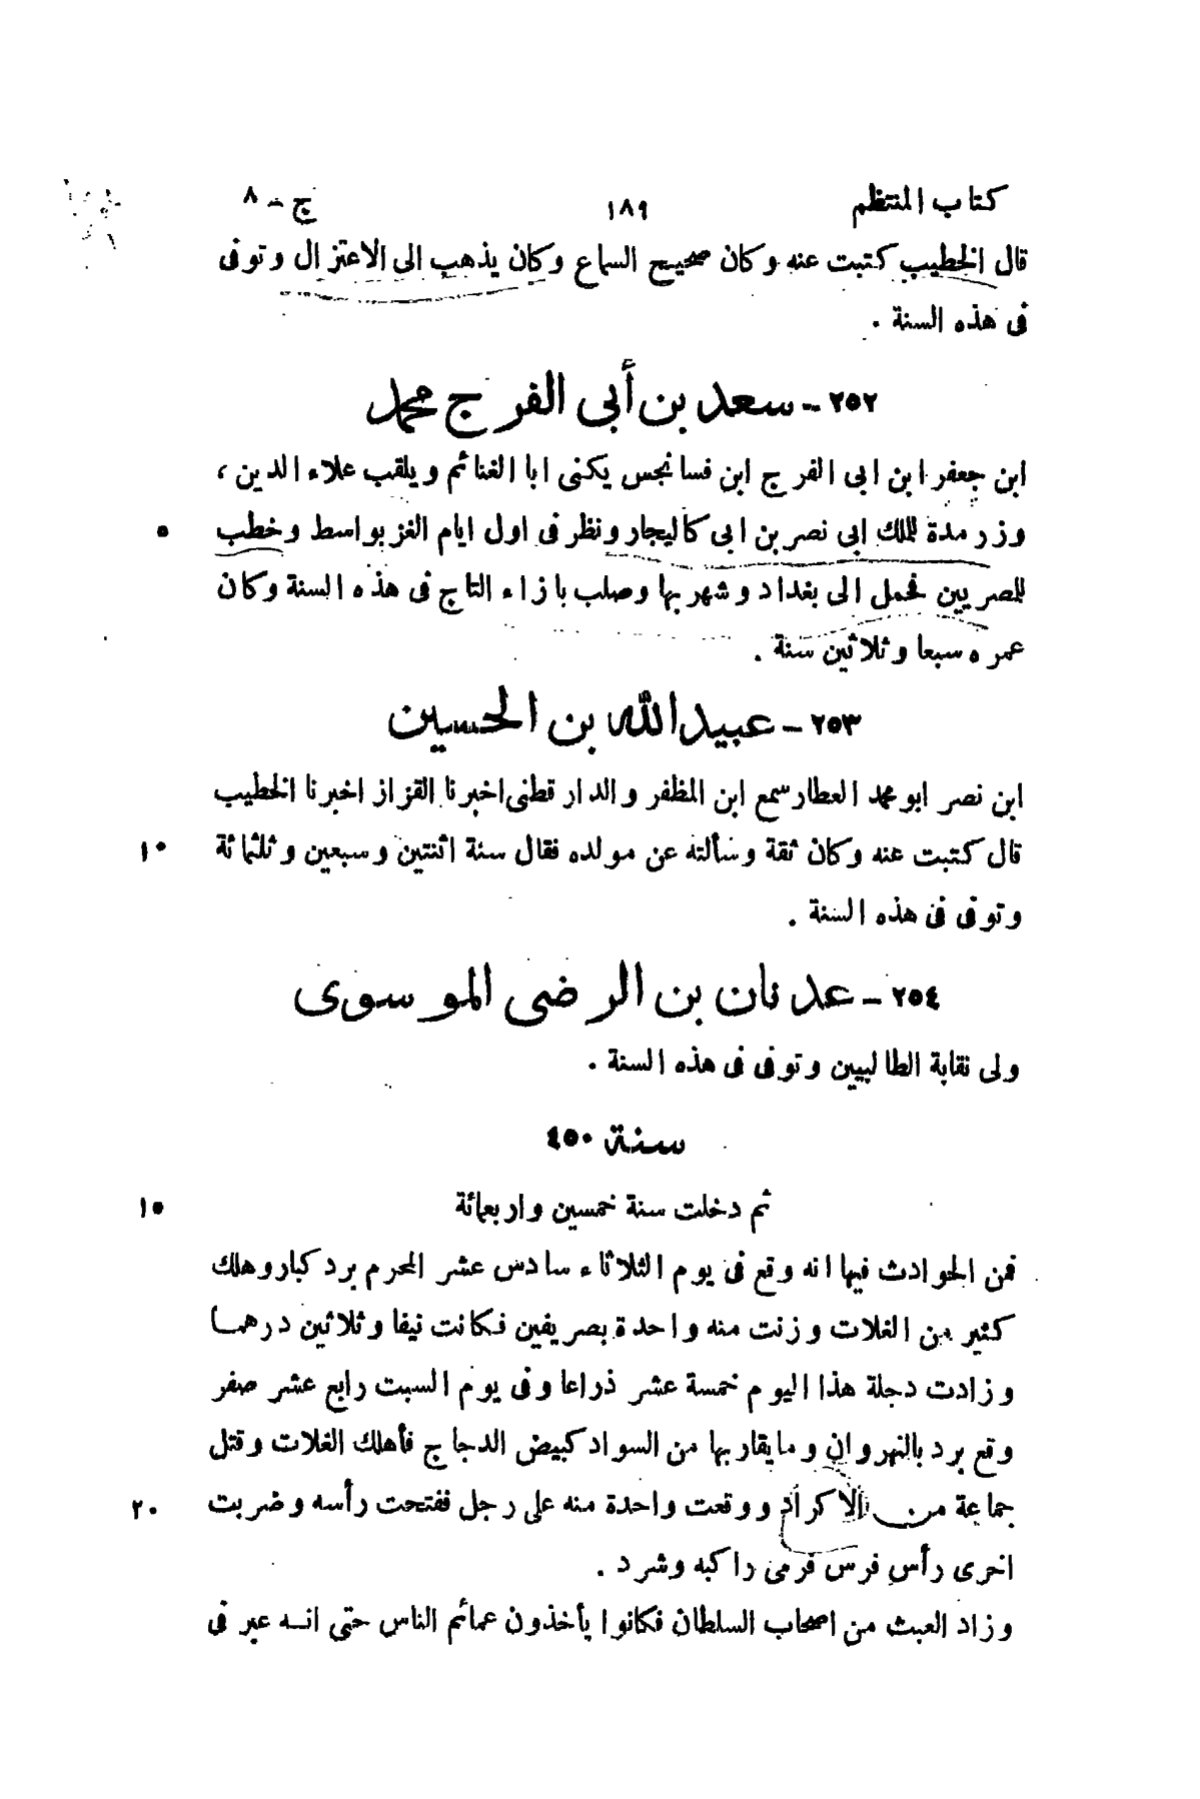 كتاب المنتظم ١٨٩ ج - ٨
قال الخطيب كتبت عنه وكان صحيح السماع وكان يذهب الى الاعتزال وتوفى
فى هذه السنة .
٢٥٢ - سعد بن أبى الفرج محمد
ابن جعفر ابن ابى الفرج ابن فسانجس يكنى ابا الغنائم ويلقب علاء الدين ،
وزر مدة للملك ابى نصر بن ابى كاليجار ونظر فى اول ايام الغز بواسط وخطب ٥
للمصريين فحمل الى بغداد وشهر بها وصلب بازاء التاج فى هذه السنة وكان
عمره سبعا وثلاثين سنة .
٢٥٣ - عبيدالله بن الحسين
ابن نصر ابو محمد العطار سمع ابن المظفر والدار قطنى اخبرنا القزاز اخبرنا الخطيب
قال كتبت عنه وكان ثقة وسألته عن مولده فقال سنة اثنتين وسبعين وثلثمائة ١٠
وتوفى فى هذه السنة .
٢٥٤ - عدنان بن الرضى الموسوى
ولى نقابة الطالبيين وتوفى فى هذه السنة .
سنة ٤٥٠
ثم دخلت سنة خمسين واربعمائة ١٥
فمن الحوادث فيها انه وقع فى يوم الثلاثاء سادس عشر المحرم برد كبار وهلك
كثير من الغلات وزنت منه واحدة بصريفين فكانت نيفا وثلاثين درهما
وزادت دجلة هذا اليوم خمسة عشر ذراعا وفى يوم السبت رابع عشر صفر
وقع برد بالنهروان وما يقاربها من السواد كبيض الدجاج فأهلك الغلات وقتل
جماعة من الاكراد ووقعت واحدة منه على رجل ففتحت رأسه وضربت ٢٠
اخرى رأس فرس فرمى راكبه وشرد .
وزاد العبث من اصحاب السلطان فكانوا يأخذون عمائم الناس حتى انه عبر فى